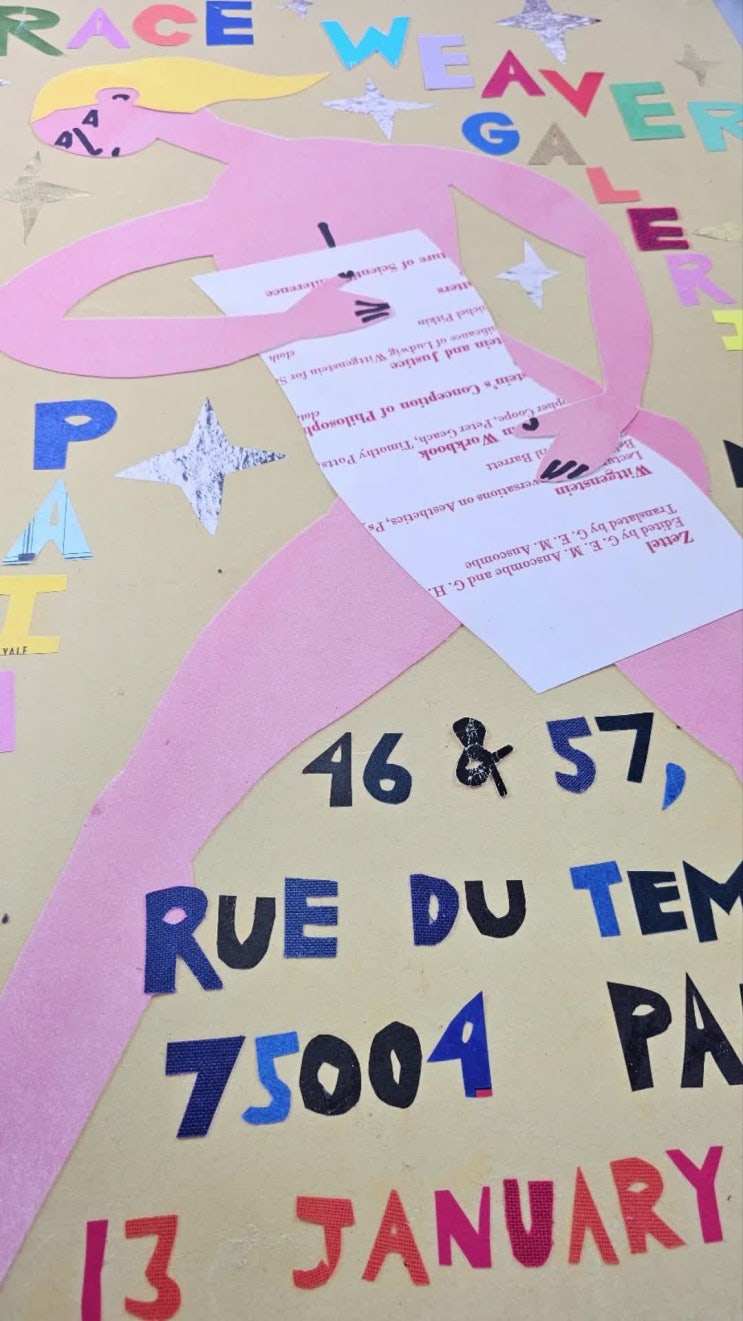 RACE WEAVER
GALERI
PAI
VALE
Zettel
Edited by G. E. M. Anscombe and G. H.
Translated by G. E. M. Anscombe
Wittgenstein
Lectu versations on Aesthetics, Ps
Barrett
Workbook
opher Coope, Peter Geach, Timothy Potts,
tein's Conception of Philosoph
clot
tein and Justice
ificance of Ludwig Wittgenstein for S
Pitkin cloth
atters
ture of Scienti ifference
46 & 57,
RUE DU TEM
75004 PA
13 JANUARY